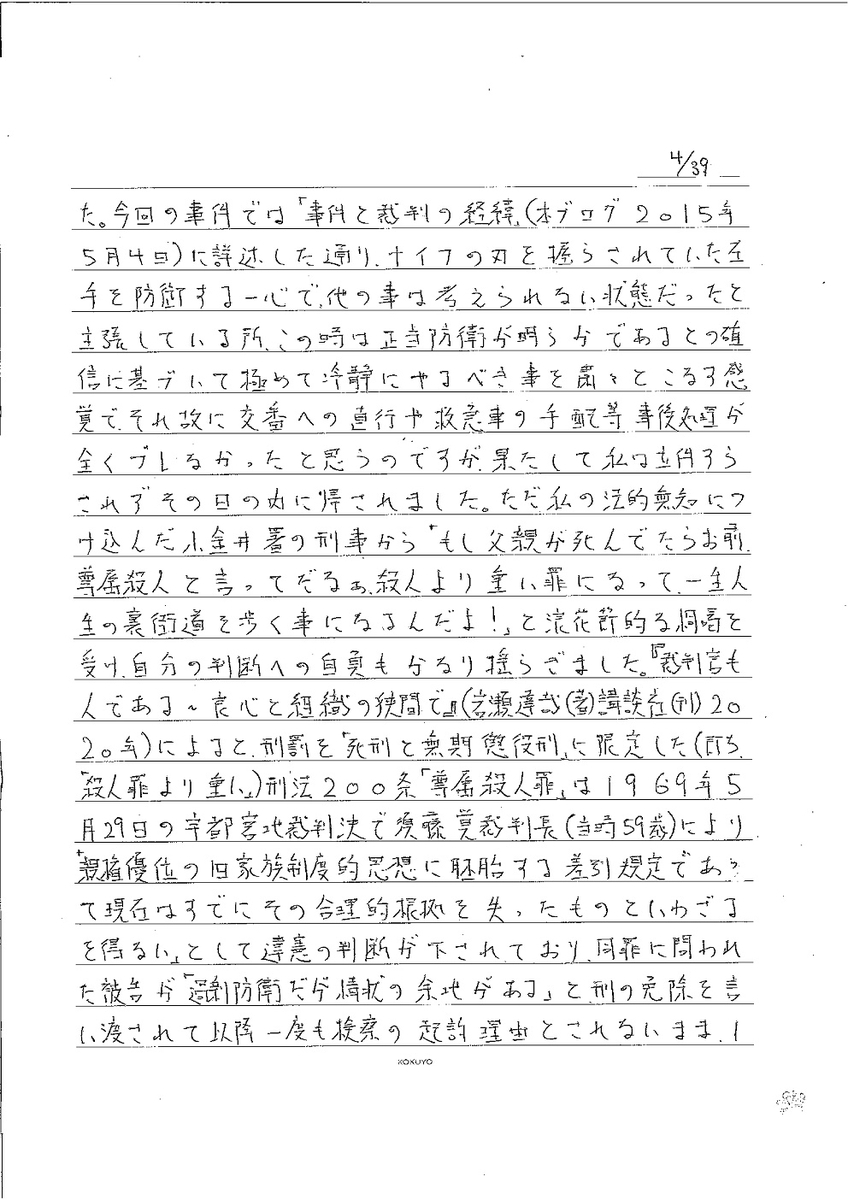 4/39
た。今回の事件では「事件と裁判の経緯」(本ブログ2015年
5月4日)に詳述した通り、ナイフの刃を握らされていた左
手を防衛する一心で、他の事は考えられない状態だったと
主張している所、この時は正当防衛が明らかであるとの確
信に基づいて極めて冷静にやるべき事を粛々とこなす感
覚で、それ故に交番への直行や救急車の手配等事後処理が
全くブレなかったと思うのですが、果たして私は立件すら
されずその日の内に帰されました。ただ私の法的無知につ
け込んだ小金井署の刑事から「もし父親が死んでたらお前、
尊属殺人と言ってだなぁ、殺人より重い罪になって、一生人
生の裏街道を歩く事になるんだよ!」と浪花節的な恫喝を
受け、自分の判断への自負もかなり揺らぎました。『裁判官も
人である~良心と組織の狭間で』(岩瀬達哉(著)講談社(刊)20
20年)によると、刑罰を「死刑と無期懲役刑」に限定した(即ち、
「殺人罪より重い」)刑法200条「尊属殺人罪」は1969年5
月29日の宇都宮地裁判決で須藤貢裁判長(当時59歳)により
「親権優位の旧家族制度的思想に胚胎する差別規定であっ
て現在はすでにその合理的根拠を失ったものといわざる
を得ない」として違憲の判断が下されており、同罪に問われ
た被告が「過剰防衛だが情状の余地がある」と刑の免除を言
い渡されて以降一度も検察の起訴理由とされないまま、1
KOKUYO